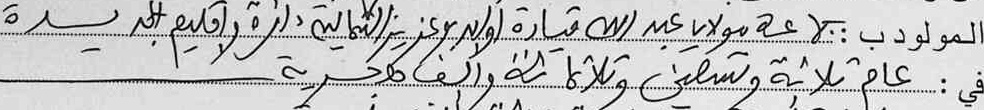 المولود ب: جماعة مولاي عبد الله قيادة أولاد بوعزيز الشمالية دائرة وإقليم الجديدة
في: عام ثلاثة وتسعين وثلاثمائة وألف هجرية